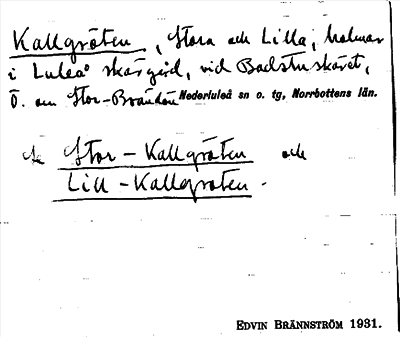 Kallgröten, Stora och Lilla, holmar
i Luleå skärgård, vid Badstuskäret,
Ö. om Stor-Brändön Nederluleå sn o. tg, Norrbottens län.
Se Stor-Kallgröten och
Lill-Kallgroten.
EDVIN BRÄNNSTRÖM 1931.